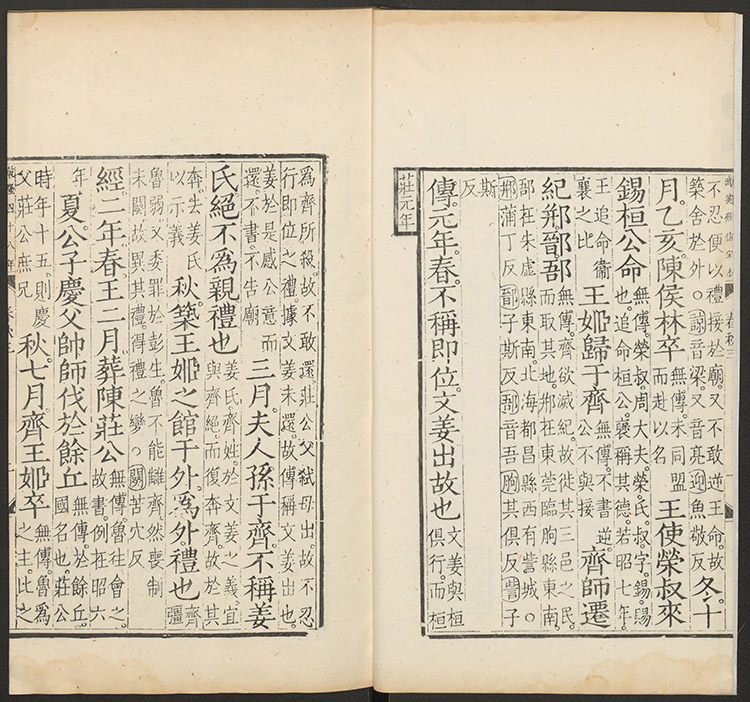 春秋三
不忍便以禮接於廟又不敢逆王命故
築舍於外○諒音梁又音亮迎魚敬反
冬十
月乙亥陳侯林卒
無傳未同盟
而赴以名
王使榮叔來
錫桓公命
無傳榮叔周大夫榮氏叔字錫賜
也追命桓公襃稱其德若昭七年
王追命衞
襄之比
王姬歸于齊
無傳不書逆
公不與接
齊師遷
紀郱鄑郚
無傳齊欲滅紀故徙其三邑之民
而取其地郱在東莞臨朐縣東南
郚在朱虛縣東南北海都昌縣西有訾城○
郱蒲丁反鄑子斯反郚音吾朐其俱反訾子
斯
反
傳元年春不稱即位文姜出故也
文姜與桓
俱行而桓
莊元年
爲齊所殺故不敢還莊公父弒母出故不忍
行即位之禮據文姜未還故傳稱文姜出也
姜於是感公意而
還不書不告廟
三月夫人孫于齊不稱姜
氏絕不爲親禮也
姜氏齊姓於文姜之義宜
與齊絕而復奔齊故於其
奔去姜氏
以示義
秋築王姬之館于外爲外禮也
齊
彊
魯弱又委罪於彭生魯不能讎齊然喪制
未闋故異其禮得禮之變○闋苦穴反
經二年春王二月葬陳莊公
無傳魯往會之
故書例在昭六
年
夏公子慶父帥師伐於餘丘
無傳於餘丘
國名也莊公
時年十五則慶
父莊公庶兄
秋七月齊王姬卒
無傳魯爲
之主比之